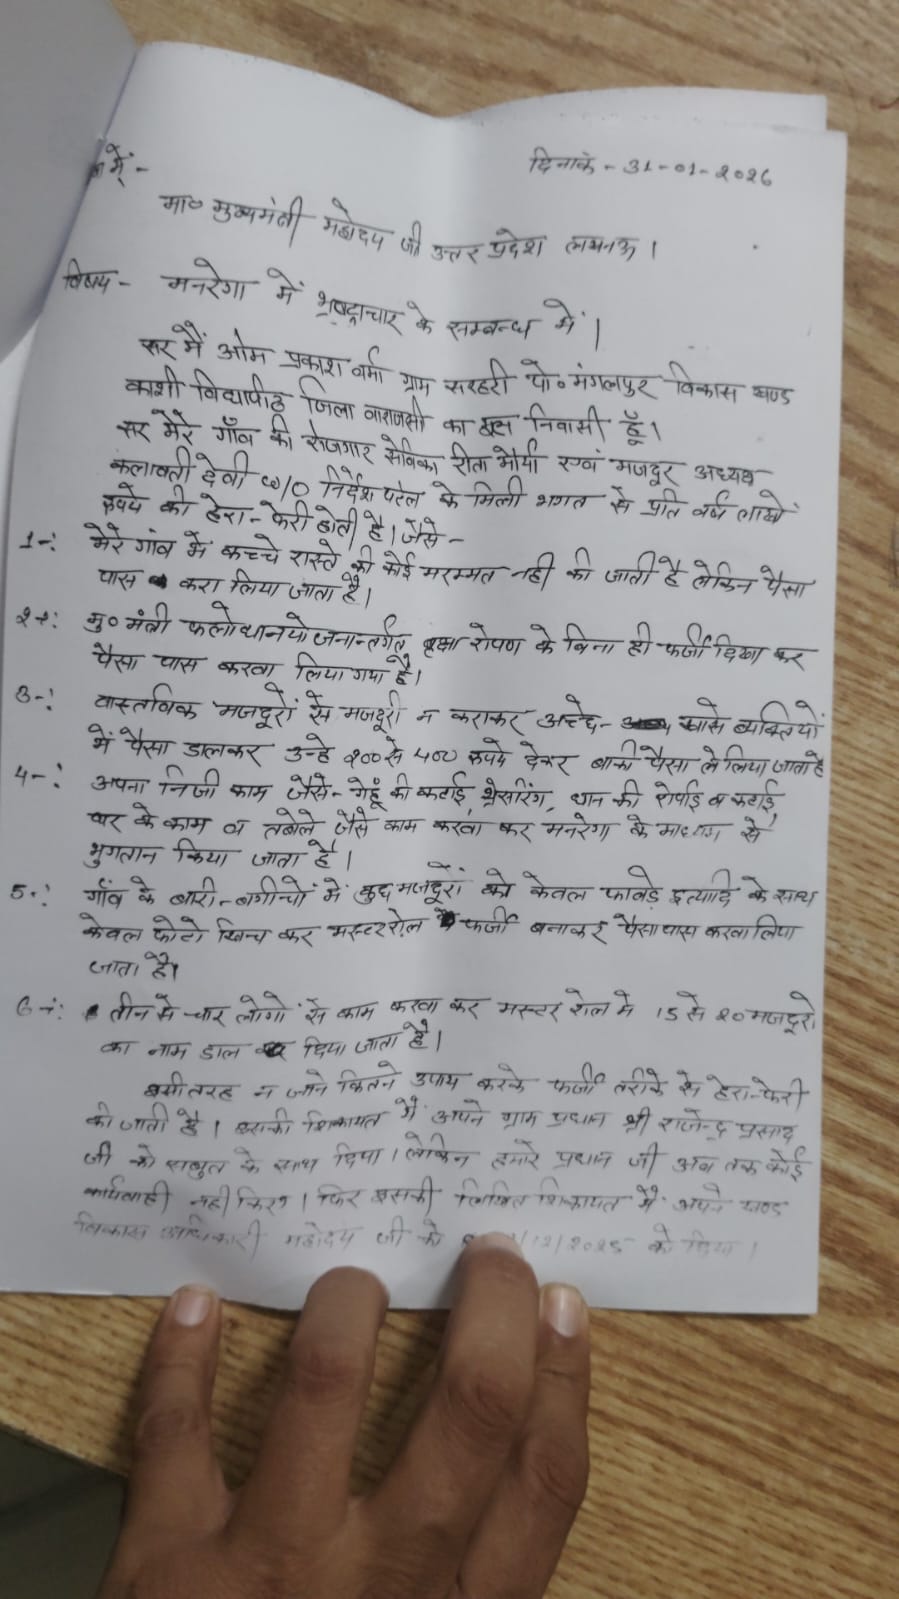 में -
दिनाकं - 31-01-2026
मा० मुख्यमंत्री महोदय जी उत्तर प्रदेश लखनऊ।
विषय - मनरेगा में भ्रष्ट्राचार के सम्बन्ध में।
सर मैं ओम प्रकाश वर्मा ग्राम सरहरी पो० मंगलपुर विकास खण्ड
काशी विद्यापीठ जिला वाराणसी का निवासी हूँ।
सर मेरे गाँव की रोजगार सेविका रीता मौर्या एवं मजदूर अध्यक्ष
कलावती देवी w/o निर्देश पटेल के मिली भगत से प्रति वर्ष लाखों
रुपये की हेरा-फेरी होती है। जैसे -
1-: मेरे गांव में कच्चे रास्ते की कोई मरम्मत नही की जाती है लेकिन पैसा
पास करा लिया जाता है।
2-: मु० मंत्री फलोधानयोजनान्तर्गत वृक्षा रोपण के बिना ही फर्जी दिखा कर
पैसा पास करवा लिया गया है।
3-: वास्तविक मजदूरों से मजदूरी न कराकर अच्छे- खासे व्यक्तियों
में पैसा डालकर उन्हे 200 से 400 रुपये देकर बाकी पैसा ले लिया जाता है
4-: अपना निजी काम जैसे- गेहूं की कटाई, थ्रेसरिंग, धान की रोपाई व कटाई,
घर के काम व तबेले जैसे काम करवा कर मनरेगा के माध्यम से
भुगतान किया जाता है।
5-: गाँव के बारी-बगीचों में कुछ मजदूरों को केवल फावड़े इत्यादि के साथ
केवल फोटो खिच कर मस्टररोल फर्जी बनाकर पैसा पास करवा लिया
जाता है।
6-: तीन से चार लोगो से काम करवा कर मस्टर रोल मे 15 से 20 मजदूरो
का नाम डाल दिया जाता है।
इसी तरह न जाने कितने उपाय करके फर्जी तरीके से हेरा-फेरी
की जाती है। इसकी शिकायत मैं अपने ग्राम प्रधान श्री राजेन्द्र प्रसाद
जी को सबुत के साथ दिया। लेकिन हमारे प्रधान जी अब तक कोई
कार्यवाही नही किए। फिर इसकी लिखित शिकायत मैं अपने खण्ड
विकास अधिकारी महोदय जी को /12/2025 को दिया।